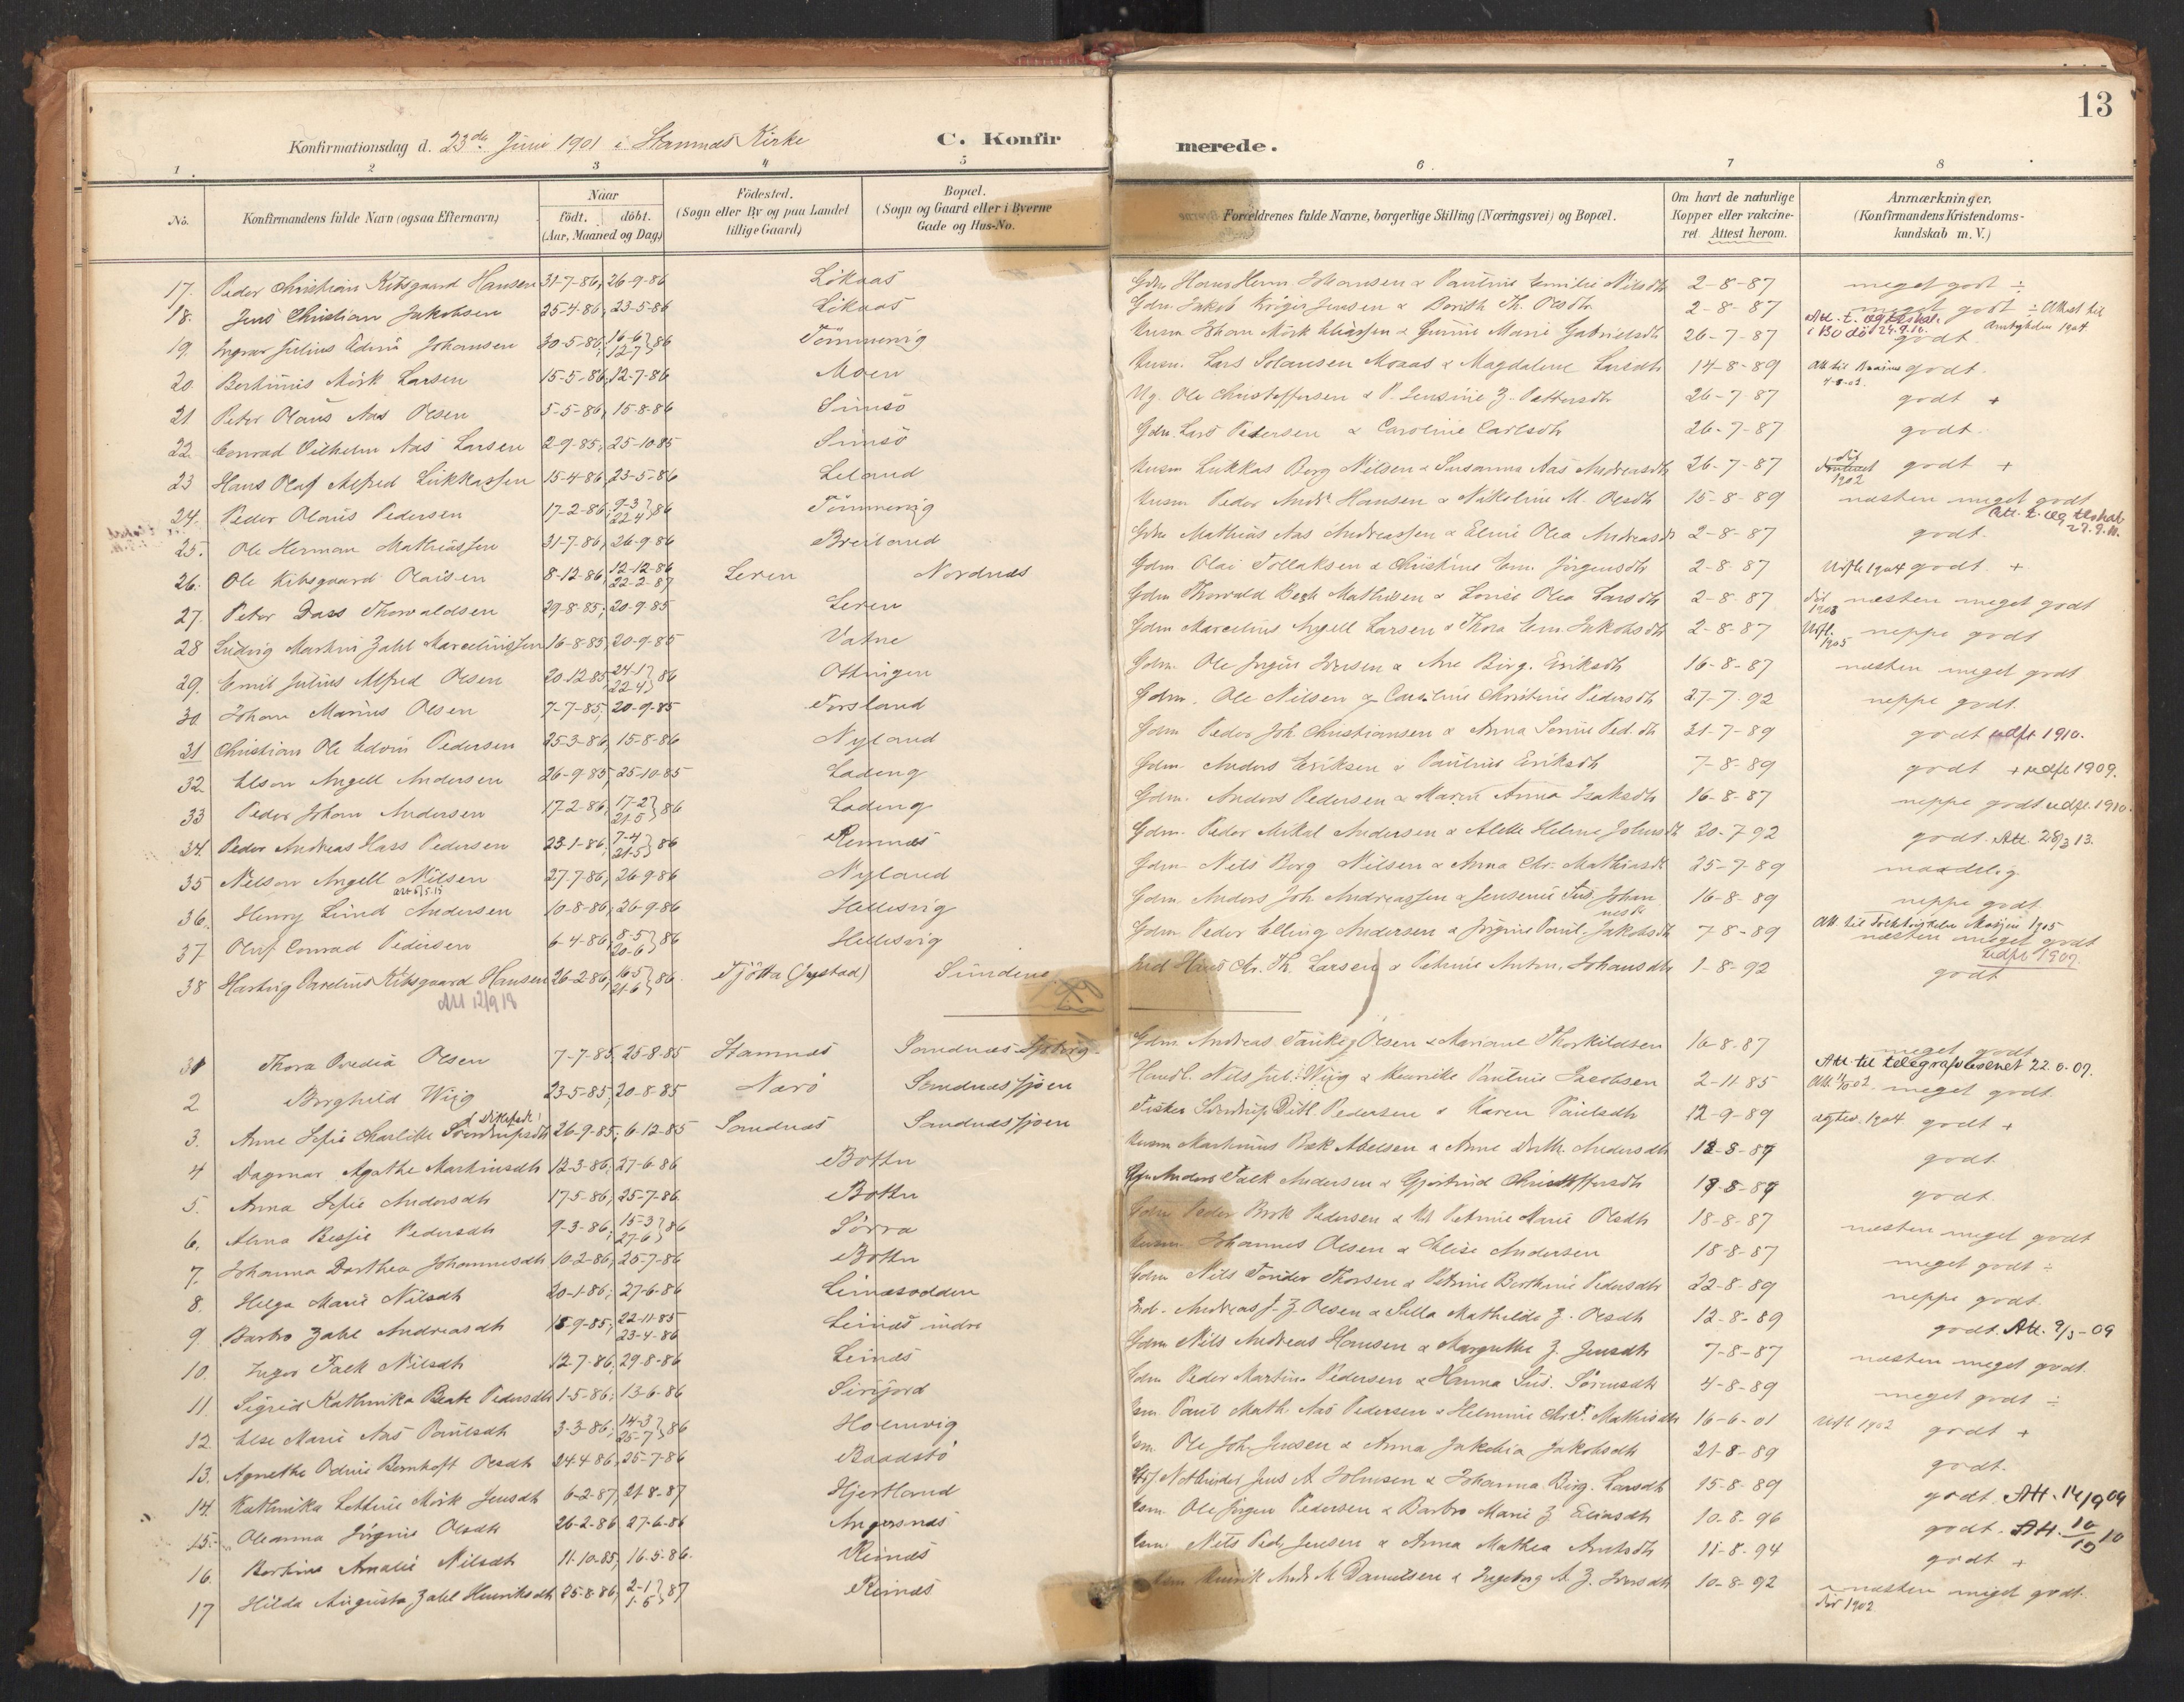 13
Konfirmationsdag d. 23de Juni 1901 i Stamnæs Kirke C. Konfirmerede.
1. 2 3 4 5 6. 7 8
No. Konfirmandens fulde Navn (ogsaa Efternavn) Naar født. døbt. (Aar, Maaned og Dag) Födested. (Sogn eller By og paa Landet tillige Gaard) Bopæl. (Sogn og Gaard eller i Byerne Gade og Hus-No. Forældrenes fulde Navne, borgerlige Stilling (Næringsvei) og Bopæl. Om havt de naturlige Kopper eller vakcineret. Attest herom. Anmærkninger. (Konfirmandens Kristendomskundskab m. V.)
17. Peder Christian Kibsgaard Hansen 31-7-86, 26-9-86 Likaas Gdm Hans Herm Johansen & Pauline Emilie Nilsdtr 2-8-87 meget godt ÷
18. Jens Christian Jakobsen 25-4-86, 23-5-86 Likaas Gdm. Jakob Kriger Jensen & Dorith Th. Olsdtr 2-8-87 meget godt ÷ Attest til Amtsskolen 1904
19. Ingvar Julius Edvin Johansen 30-5-86, 16-6 12-7 } 86 Tömmervig Husm Johan Mörk Eliassen & Marie Gabrielsdtr 26-7-87 Att. t. i Bodö 24.9.10. godt
20. Bertinus Mörk Larsen 15-5-86, 12-7-86 Moen Husm. Lars Moaas & Magdalene Larsdtr 14-8-89 Att til godt
21 Peter Olaus Aas Olsen 5-5-86, 15-8-86 Simsö Ug. Ole Christoffersen & P. Jensine Z. Pettersdtr 26-7-87 godt +
22. Conrad Vilhelm Aas Larsen 2-9-85, 25-10-85 Simsö Gdm. Lars Pedersen & Caroline Carlsdtr 26-7-87 godt.
23 Hans Olaf Alfred Lukkassen 15-4-86, 23-5-86 Leland Husm Lukkas Borg Nilsen & Susanna Aas Andreasdtr 26-7-87 1902 godt +
24. Peder Olaus Pedersen 17-2-86, 9-3 22-4 } 86 Tömmervig Husm. Peder Andr. Hansen & Nikoline M. Olsdtr 15-8-89 næsten meget godt
25. Ole Herman Mathiassen 31-7-86, 26-9-86 Breiland Gdm Mathias Aas Andreassen & Eline Olea Andreasd 2-8-87 godt. Att. t.
26. Ole Kibsgaard Olaisen 8-12-86, 12-12-86 22-2-87 Leren Nordnæs Gdm. Olai Tollaksen & Christine Em. Jörgensdtr 2-8-87 Utfl. 1904 godt. +
27. Peter Dass Thorvaldsen 29-8-85; 20-9-85 Leren Gdm Thorvald Bech Mathisen & Lovise Olea Larsdtr 2-8-87 næsten meget godt
28 Ludvig Martin Zahl Marceliussen 16-8-85, 20-9-85 Vatne Gdm Marcelius Angell Larsen & Thora Em. Jakobsdtr 2-8-87 Utfl. 1905 neppe godt
29. Emil Julius Alfred Olsen 20-12-85, 24-1 22-4 } 86 Ottingen Gdm. Ole Jörgen Iversen & Ane Birg. Eriksdtr 16-8-87 næsten meget godt
30. Johan Marius Olsen 7-7-85, 20-9-85 Forsland Gdm. Ole Nilsen & Caroline Christine Pedersdtr 27-7-92 neppe godt.
31 Christian Ole Edvin Pedersen 25-3-86, 15-8-86 Nyland Gdm Peder Joh. Christiansen & Anna Ped.dtr 21-7-89 godt udfl. 1910.
32. Elson Angell Andersen 26-9-85, 25-10-85 Lading Gdm. Anders Eriksen & Pauline Eriksdtr 7-8-89 godt + udfl. 1909.
33 Peder Johan Andersen 17-2-86, 17-2 21-5 } 86 Lading Gdm. Anders Pedersen & Maren Anna Isaksdtr 16-8-87 neppe godt udfl. 1910.
34. Peder Andreas Hass Pedersen 23-1-86, 7-4 21-5 } 86 Remnes Gdm. Peder Mikal Andersen & Alette Helene Johnsdt 20-7-92 godt. Att. 28/3 13.
35 Nelson Angell Nilsen 27-7-86, 26-9-86 Nyland Gdm. Nils Borg Nilsen & Anna Chr. Mathiasdt 25-7-89 maadelig
36. Henry Lund Andersen 10-8-86, 26-9-86 Hellesvig Gdm. Anders Joh Andreassen & Jensine Johannesdtr 16-8-89 neppe godt.
37 Oluf Conrad Pedersen 6-4-86, 8-5 20-6 } 86 Hellesvig Gdm Peder Elling Andersen & Jörgine Paul. Jakobsdt 7-8-89 Att. til Mosjøen 1905 næsten meget godt udfl. 1907.
38 Hartvig Parelius Kibsgaard Hansen 26-2-86, 16-5 21-6 } 86. Tjötta (Systad) Sundene Ind Hans Chr. Th. Larsen & Petrine Anton. Johansdtr 1-8-92 godt
Att 12/9 18
1 Thora Ovedia Olsen 7-7-85, 25-8-85 Stamnæs Sandnæs Gdm. Andreas Olsen & Mariane Thorkildsen 16-8-87 meget godt Att. til telegrafvæsenet 22.6.07.
2 Borghild Wiig 23-5-85, 20-8-85 Narö Sandnæssjøen Handl. Nils Jul. Wiig & Henrikke Pauline Jacobsen 2-11-85 meget godt.
3. Anne Sofie Charlotte 26-9-85, 6-12-85 Sandnæs Sandnæssjøen Fisker Pedersen & Karen Paulsdtr 12-9-89 1904. godt +
4 Dagmar Agathe Martinsdtr 12-3-86; 27-6-86 Botn Husm Martinus Bæk Abelsen & Anne Dorth. Andersdtr 18-8-87 godt
5. Anna Sofie Andersdtr 17-5-86, 25-7-86 Botn Anders Falk Andersen & Gjertrud Christoffersdtr godt.
6. Alma Bessie Pedersdtr 9-3-86, 15-3 27-6 } 86 Sörra Peder Brok Pedersen & Petrine Marie Olsdtr 18-8-87 næsten meget godt
7. Johanna Dorthea Johannesdtr 10-2-86, 25-7-86 Botn Johannes Olsen & Elise Andersen 18-8-87 meget godt ÷
8. Helga Marie Nilsdtr 20-1-86; 27-6-86 Leinesodden Gdm Nils Tønder Thorsen & Petrine Berthine Pedersdtr 22-8-89 neppe godt.
9. Barbro Zahl Andreasdtr 15-9-85, 22-11-85 23-4-86 Leines indre Ind. Andreas J. Z. Olsen & Silla Mathilde Z. Olsdtr 12-8-89 godt. Att. 9/3-09
10. Inger Falk Nilsdtr 12-7-86, 29-8-86 Leines Gdm Nils Andreas Hansen & Margrethe Z. Jensdtr 7-8-87 næsten meget godt.
11. Sigrid Kathinka Beate Pedersdtr 1-5-86; 13-6-86 Sirifjord Gdm Peder Martin Pedersen & Hanna Sus. Sörensdtr 4-8-89 meget godt ÷
12. Else Marie Aas Paulsdtr 3-3-86; 14-3 25-7 } 86 Holmvig Paul Math. Aas Pedersen & Helmine Mathisdtr 16-6-01 Utfl. 1902 godt +
13. Agnethe Odine Bernhoft Olsdtr 24-4-86, 25-7-86 Baadstö Ole Joh. Jensen & Anna Jakobia Jakobsdtr 21-8-89 godt.
14. Kathinka Lettine Mörk Jensdtr 6-2-87, 21-8-87 Hjertland Notbinder Jens A. Holmsen & Johanna Birg. Larsdtr 15-8-89 godt. Att. 14/9 09
15. Oleanna Jörgine Olsdtr 26-2-86 27-6-86 Angersnes Ole Jörgen Pedersen & Barbro Marie Z Eliasdtr 10-8-96 godt. Att. 10/10 10
16. Bertine Amalie Nilsdtr 11-10-85, 16-5-86. Reines Nils Peder Jensen & Anna Mathea Antsdtr 11-8-94 godt +
17 Hilda Augusta Zahl Henriksdtr 25-8-86, 2-1 1-5 } 87 Reines Henrik Andr. M Danielsen & Ingeborg A. Z. Iversdtr 10-8-92 næsten meget godt. Död 1902